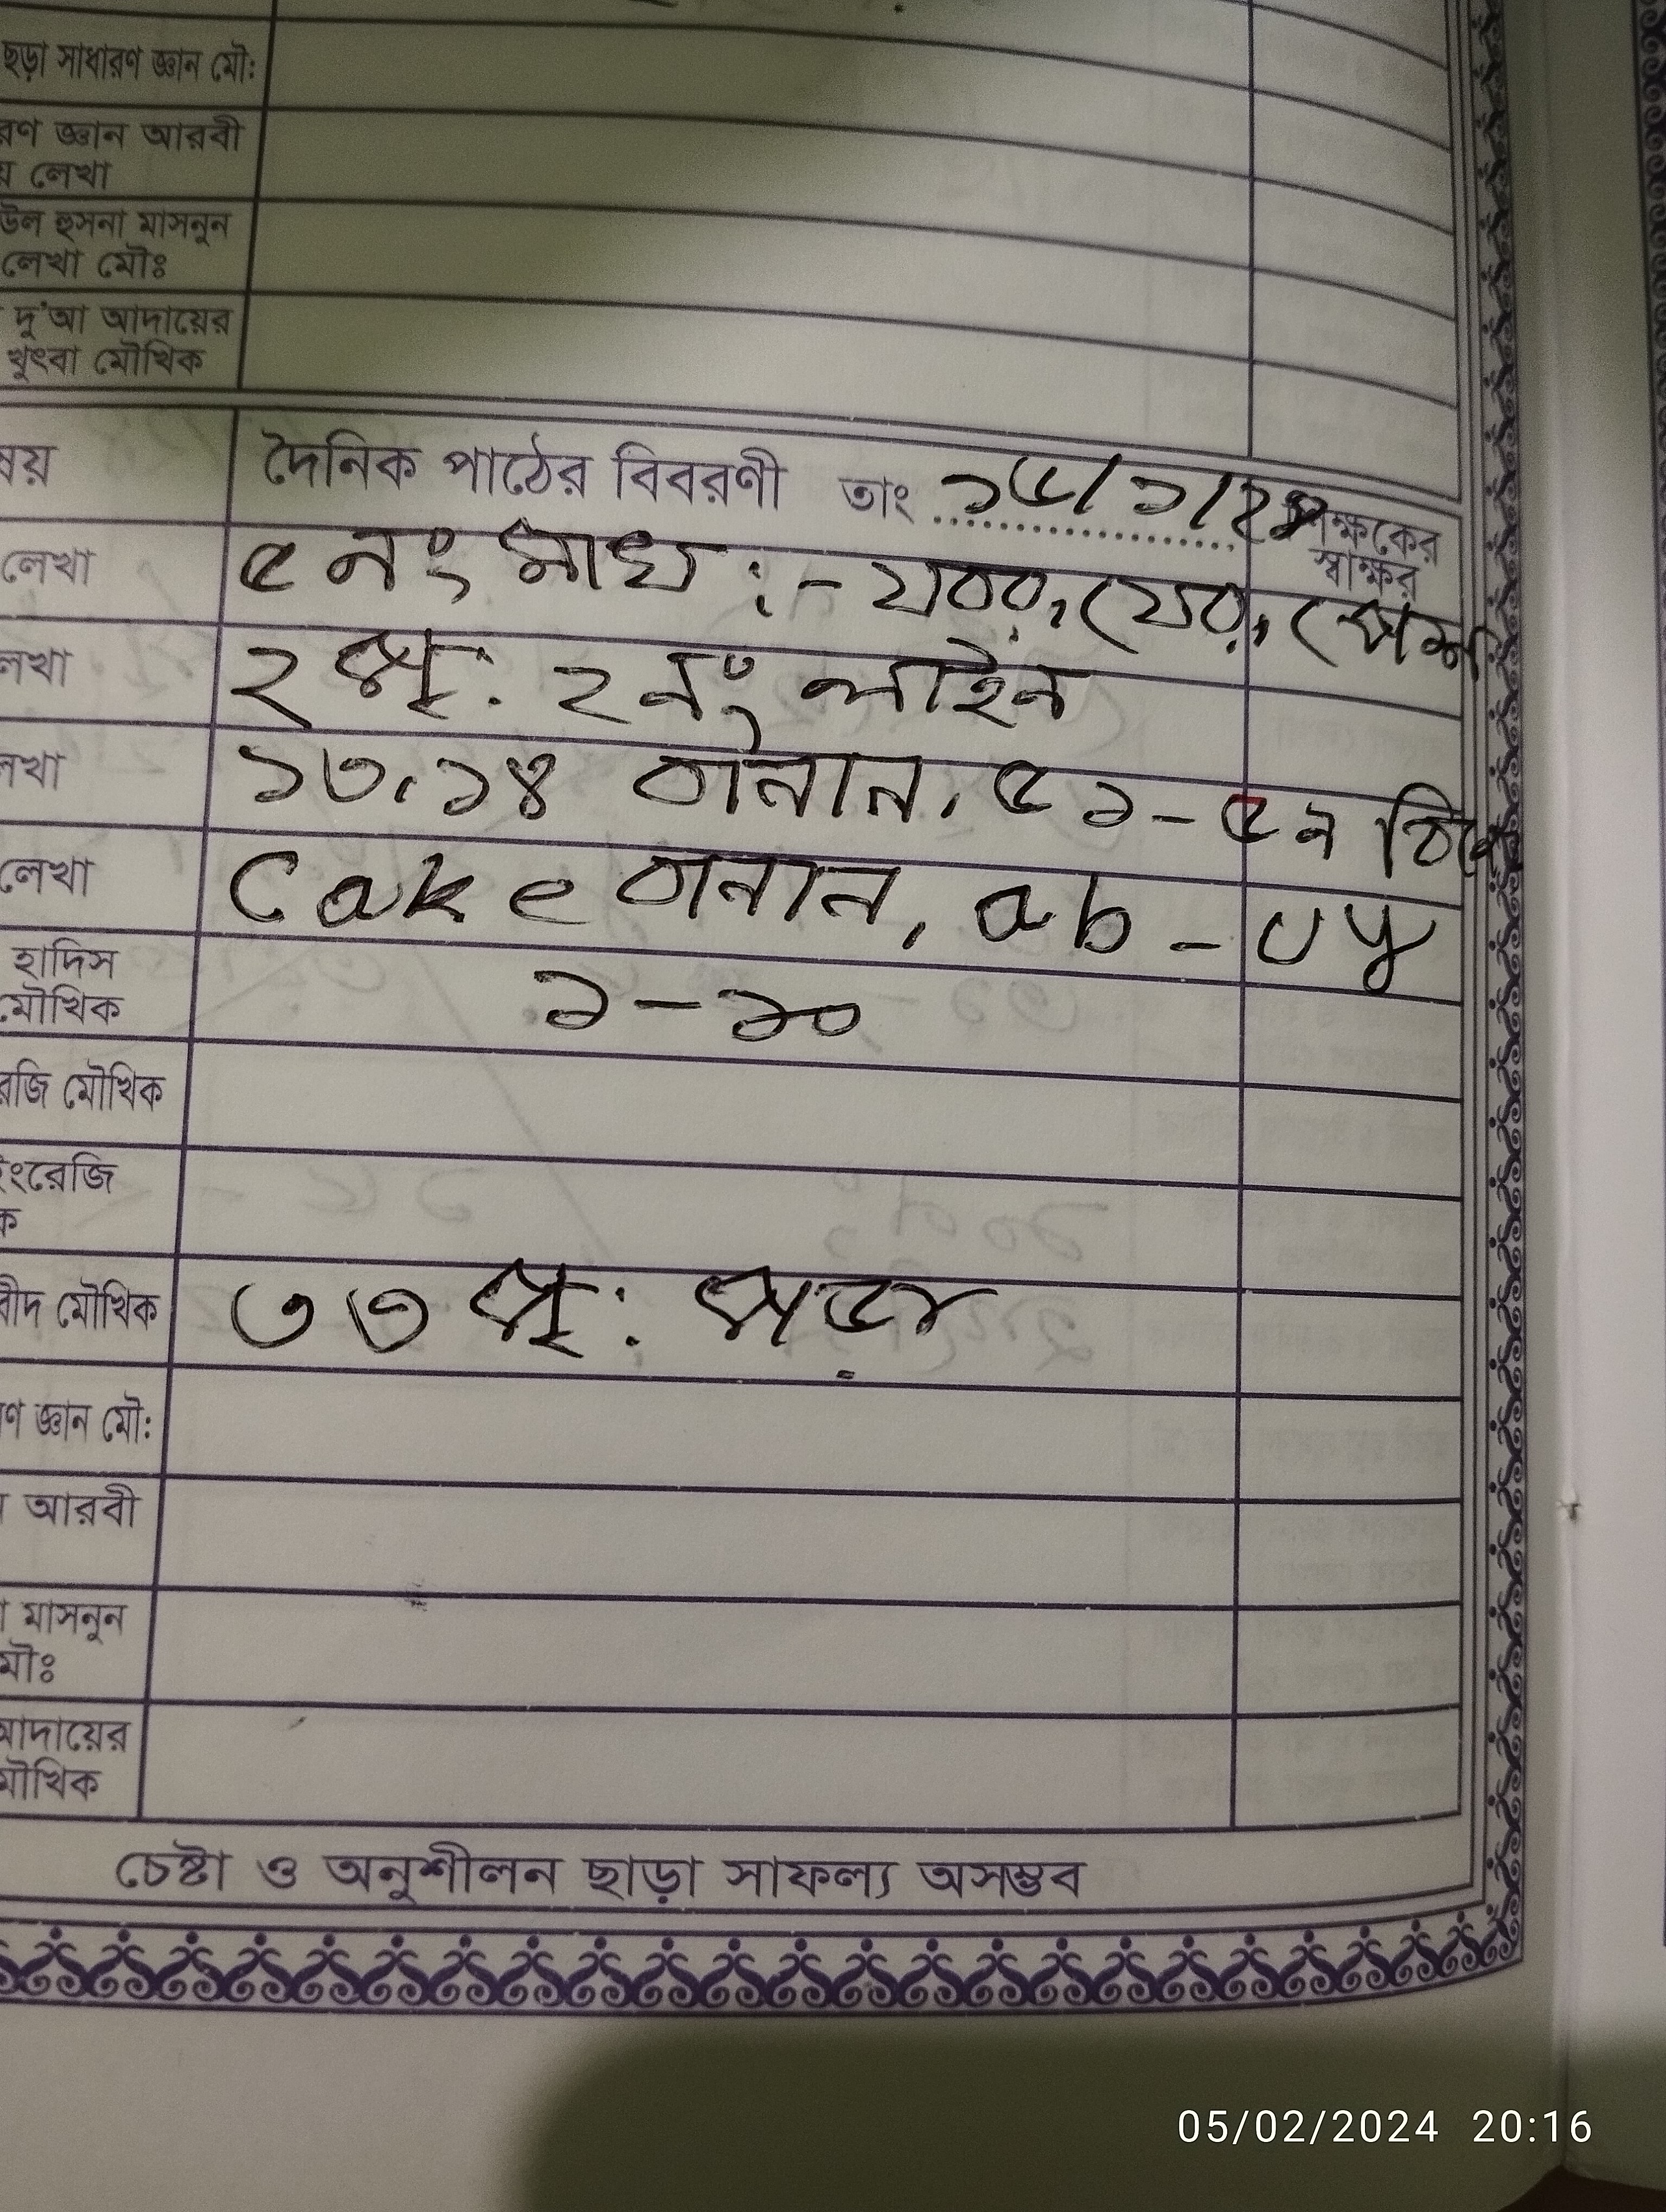 ছড়া সাধারণ জ্ঞান মৌ:
রণ জ্ঞান আরবী
য় লেখা
উল হুসনা মাসনুন
লেখা মৌঃ
দু'আ আদায়ের
খুৎবা মৌখিক
ষয় দৈনিক পাঠের বিবরণী তাং ১৫/১/২৪ শিক্ষকের
স্বাক্ষর
লেখা ৫ নং মাখ :- যবর, যের, পেশ
লখা ২ পৃ: ২নং লাইন
নখা ১৩, ১৪ বানান, ৫১-৫৭
লেখা Cake বানান, ab - uy
হাদিস
মৌখিক ১-১০
রজি মৌখিক
ইংরেজি
ক
বীদ মৌখিক ৩৩ পৃ: পড়া
ণ জ্ঞান মৌ:
আরবী
মাসনুন
মৌঃ
আদায়ের
মৌখিক
চেষ্টা ও অনুশীলন ছাড়া সাফল্য অসম্ভব
05/02/2024 20:16